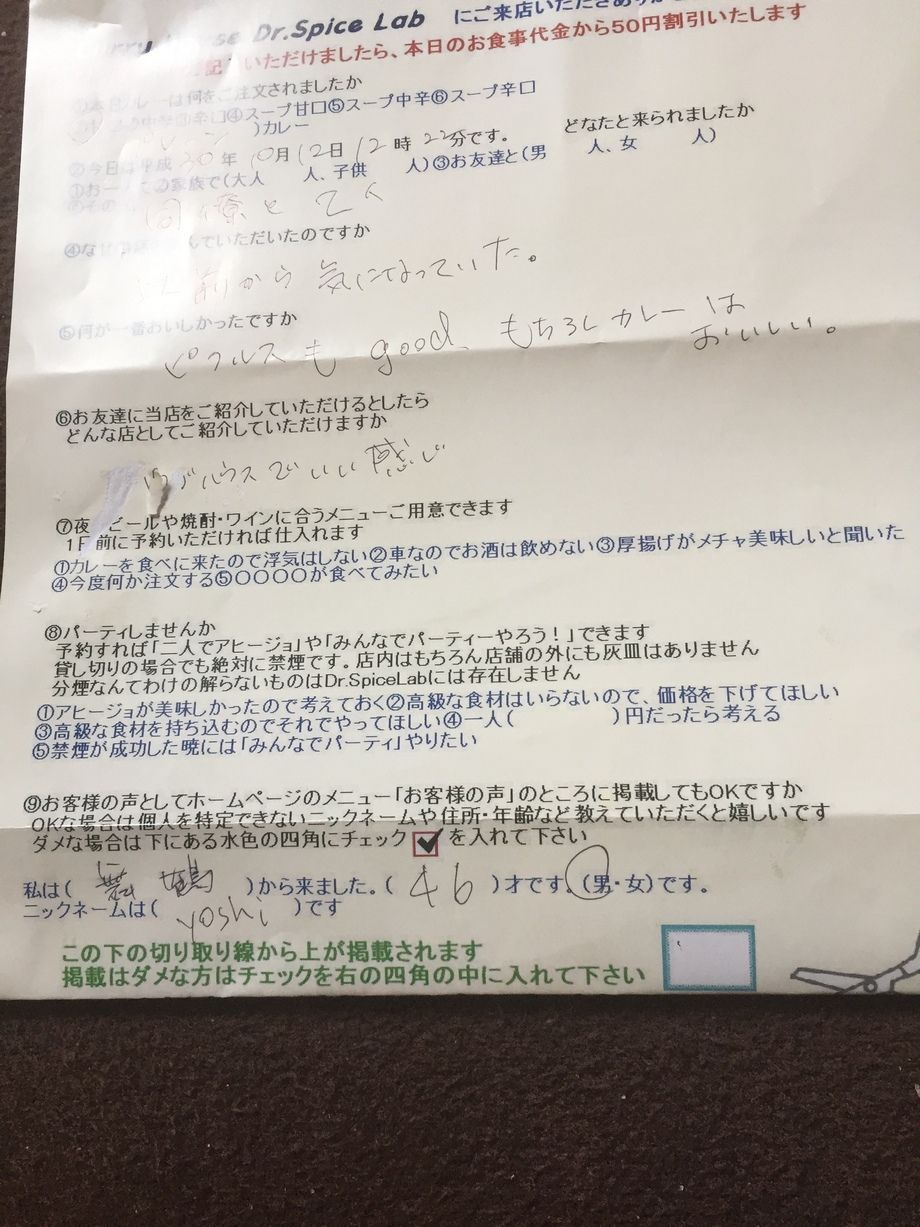 rry House Dr.Spice Lab にご来店いただきあり
ご記入いただけましたら、本日のお食事代金から50円割引いたします
①本日カレーは何をご注文されましたか
④スープ甘口⑤スープ中辛⑥スープ辛口
)カレー
②今日は平成 30 年 10月12日 12 時 22分です。 どなたと来られましたか
②家族で(大人 人、子供 人)③お友達と(男 人、女 人)
同僚と 2人
んでいただいたのですか
以前から 気になっていた。
⑤何が一番おいしかったですか
ピクルスも good、もちろんカレーは
おいしい。
⑥お友達に当店をご紹介していただけるとしたら
どんな店としてご紹介していただけますか
ハウスでいい感じ
⑦夜 ビールや焼酎・ワインに合うメニューご用意できます
1日前に予約いただければ仕入れます
①カレーを食べに来たので浮気はしない②車なのでお酒は飲めない③厚揚げがメチャ美味しいと聞いた
④今度何か注文する⑤○○○○が食べてみたい
⑧パーティしませんか
予約すれば「二人でアヒージョ」や「みんなでパーティーやろう!」できます
貸し切りの場合でも絶対に禁煙です。店内はもちろん店舗の外にも灰皿はありません
分煙なんてわけの解らないものはDr.SpiceLabには存在しません
①アヒージョが美味しかったので考えておく②高級な食材はいらないので、価格を下げてほしい
③高級な食材を持ち込むのでそれでやってほしい④一人( )円だったら考える
⑤禁煙が成功した暁には「みんなでパーティ」やりたい
⑨お客様の声としてホームページのメニュー「お客様の声」のところに掲載してもOKですか
OKな場合は個人を特定できないニックネームや住所・年齢など教えていただくと嬉しいです
ダメな場合は下にある水色の四角にチェック を入れて下さい
私は( 舞鶴 )から来ました。( 46 )才です。(男・女)です。
ニックネームは( yoshi )です
この下の切り取り線から上が掲載されます
掲載はダメな方はチェックを右の四角の中に入れて下さい